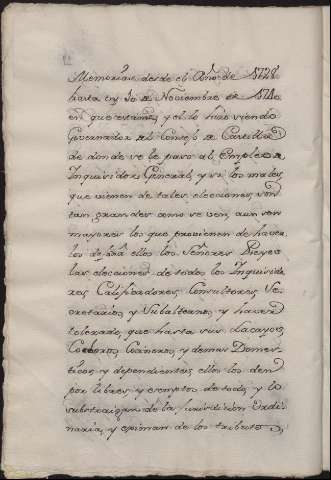 Memorias desde el Año de 1728
hasta en 30 de Noviembre de 174
en que estamos, y el lo hizo siendo
Governador del Consejo de Castilla
de donde se le paso al Empleo de
Inquisidor General, y si los males
que vienen de tales elecciones, son
tan grandes como se ven, aun son
mayores los que provienen de haver
los Señores Reyes
las elecciones de todos los Inquisido
res, Calificadores, Consultores, Se-
cretarios, y Subalternos, y haver
tolerado, que hasta sus lacayos,
Cocheros, Cocineros, y demas Domes-
ticos, y dependientes, ellos los den
por libres, y exemptos de todo, y lo
substraigan de la Jurisdicion Ordi-
naria, y eximan de los tributos,